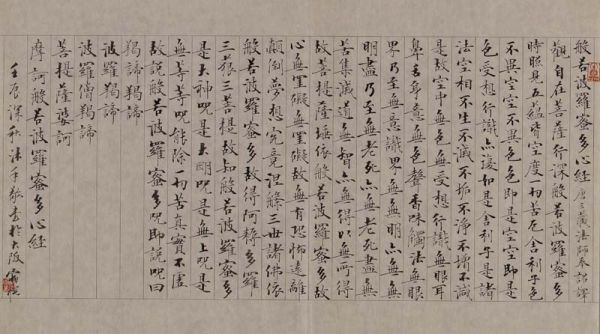 般若波羅蜜多心經 唐三藏法師奉詔譯
觀自在菩薩行深般若波羅蜜多
時照見五蘊皆空度一切苦厄舍利子色
不異空空不異色色即是空空即是
色受想行識亦復如是舍利子是諸
法空相不生不滅不垢不淨不增不減
是故空中無色無受想行識無眼耳
鼻舌身意無色聲香味觸法無眼
界乃至無意識界無無明亦無無
明盡乃至無老死亦無老死盡無
苦集滅道無智亦無得以無所得
故菩提薩埵依般若波羅蜜多故
心無罣礙無罣礙故無有恐怖遠離
顛倒夢想究竟涅槃三世諸佛依
般若波羅蜜多故得阿耨多羅
三藐三菩提故知般若波羅蜜多
是大神呪是大明呪是無上呪是
無等等呪能除一切苦真實不虛
故說般若波羅蜜多呪即說呪曰
羯諦羯諦
波羅羯諦
波羅僧羯諦
菩提薩婆訶
摩訶般若波羅蜜多心經
壬辰深秋沐手敬書於大阪